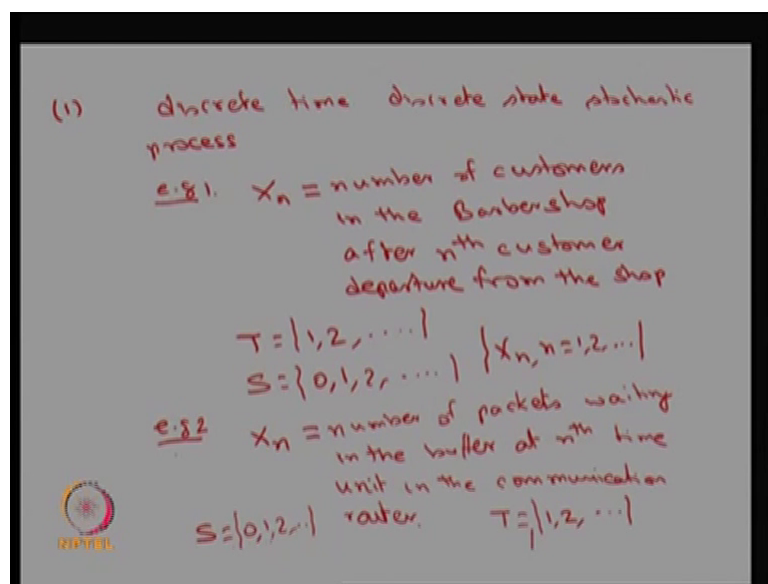 (1) discrete time discrete state stochastic
process
e.g 1. Xn = number of customers
in the Barbershop
after nth customer
departure from the shop
T = {1, 2, ....}
S = {0, 1, 2, ....} {Xn, n = 1, 2, ...}
e.g 2 Xn = number of packets waiting
in the buffer at nth time
unit in the communication
S = {0, 1, 2, ..} router. T = {1, 2, ...}
NPTEL